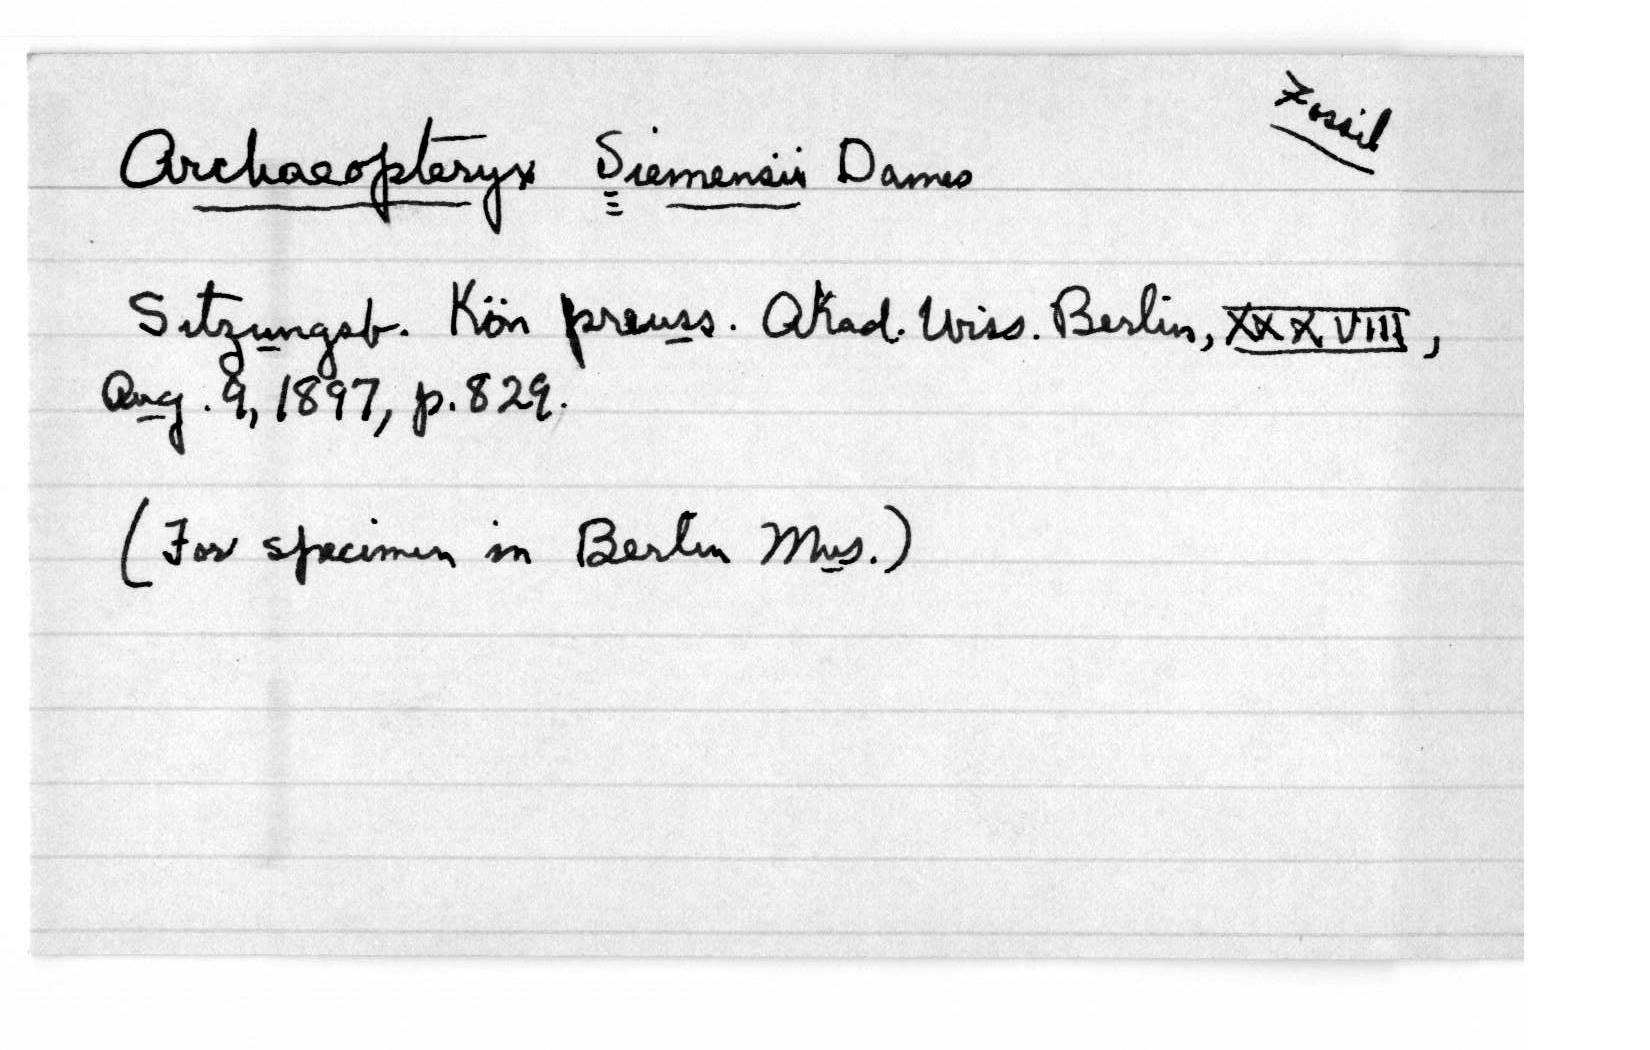 Fossil
Archaeopteryx Siemensii Dames
Sitzungsb. Kön preuss. Akad. Wiss. Berlin, XXXVIII,
Aug. 9, 1897, p. 829.
(For specimen in Berlin Mus.)